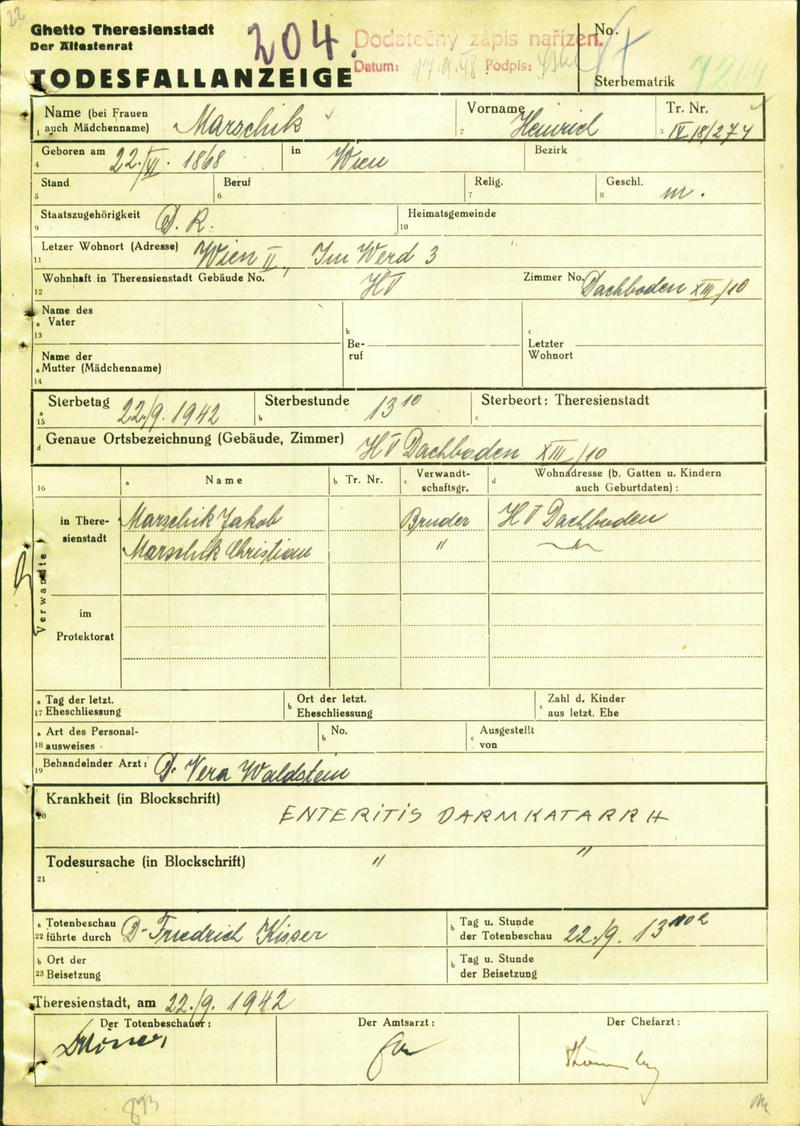 22
Ghetto Theresienstadt
Der Ältestenrat
204.
Dodatečný zápis nařízen.
Datum: 17.9.48 Podpis:
No.
TODESFALLANZEIGE
Sterbematrik
Name (bei Frauen
1 auch Mädchenname) Marschik
Vorname
2 Heinrich
Tr. Nr.
3 IV 18/274
4 Geboren am 22./VI. 1868 in Wien Bezirk
5 Stand 6 Beruf 7 Relig. 8 Geschl. m.
9 Staatszugehörigkeit D. R. 10 Heimatsgemeinde
11 Letzer Wohnort (Adresse) Wien II., Im Werd 3
12 Wohnhaft in Therensienstadt Gebäude No. HV Zimmer No. Dachboden XIII/10
a Name des
Vater
13
b Be-
ruf
c Letzter
Wohnort
Name der
a Mutter (Mädchenname)
14
a 15 Sterbetag 22./9. 1942 b Sterbestunde 13 10 c Sterbeort: Theresienstadt
d Genaue Ortsbezeichnung (Gebäude, Zimmer) HV Dachboden XIII/10
16 a Name b Tr. Nr. c Verwandt-
schaftsgr. d Wohnadresse (b. Gatten u. Kindern
auch Geburtdaten) :
Verwandte
in There-
sienstadt
Marschik Jakob Bruder HV Dachboden
Marschik Christian "
im
Protektorat
a Tag der letzt.
17 Eheschliessung
b Ort der letzt.
Eheschliessung
c Zahl d. Kinder
aus letzt. Ehe
a Art des Personal-
18 ausweises
b No.
c Ausgestellt
von
19 Behandelnder Arzt: Dr Vera Waldstein
Krankheit (in Blockschrift) ENTERITIS DARMKATARRH
20
Todesursache (in Blockschrift) " "
21
a Totenbeschau
22 führte durch Dr Friedrich Kisser
b Tag u. Stunde
der Totenbeschau 22./9. 13
b Ort der
23 Beisetzung
b Tag u. Stunde
der Beisetzung
Theresienstadt, am 22./9. 1942
Der Totenbeschauer:
Der Amtsarzt:
Der Chefarzt:
893